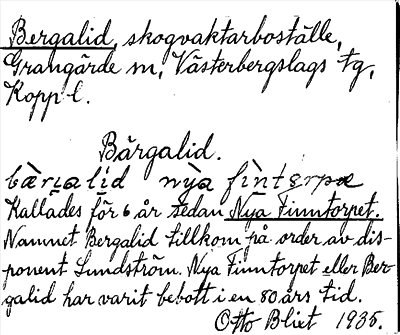 Bergalid, skogvaktarboställe,
Grangärde sn, Västerbergslags tg,
Kopp l.
Bärgalid.
bæ̀rɪalíd nỳa fìntərpæ
Kallades för 6 år sedan Nya Finntorpet.
Namnet Bergalid tillkom på order av dis-
ponent Lundström. Nya Finntorpet eller Ber-
galid har varit bebott i en 80 års tid.
Otto Bliet 1935.